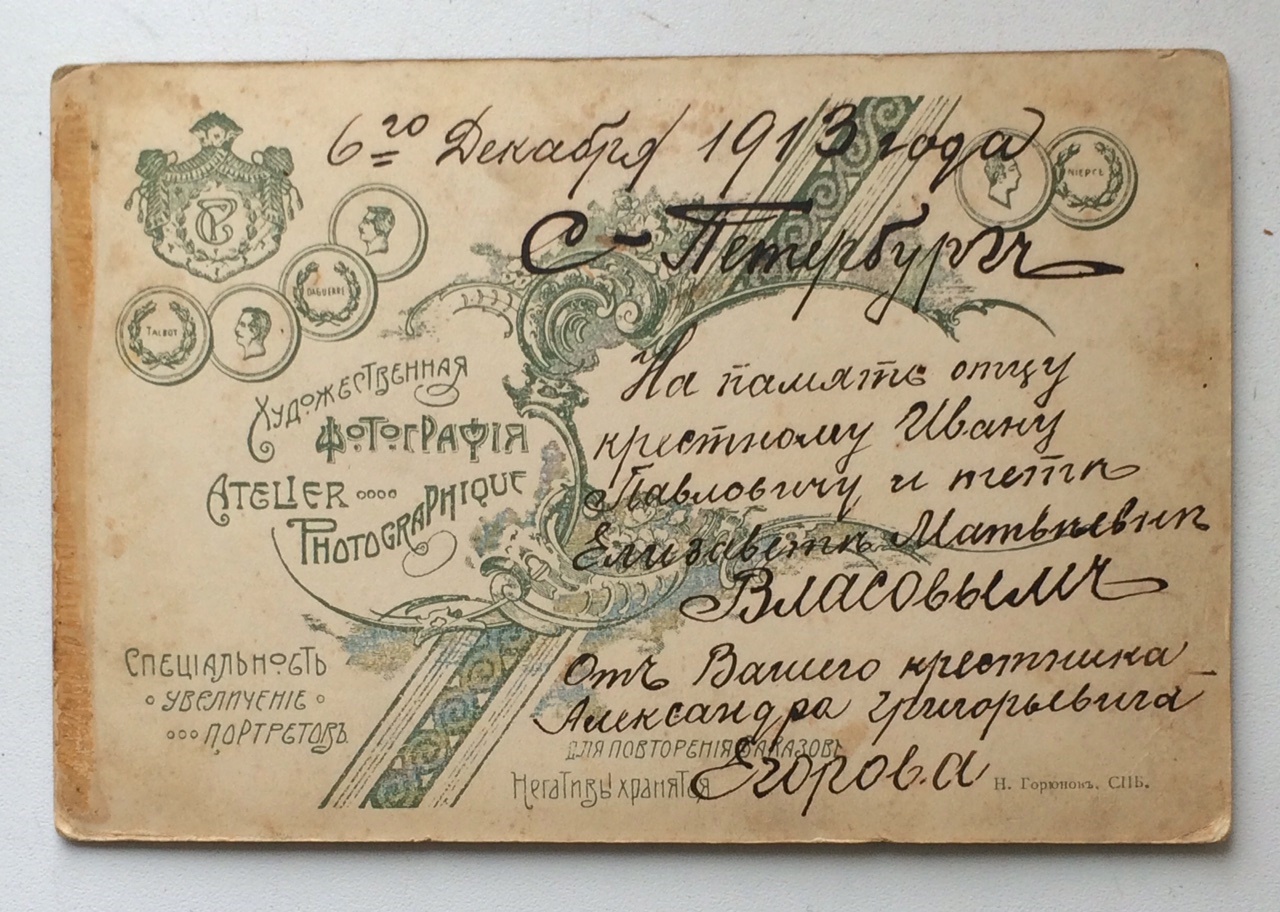 6го Декабря 1913 года
С-Петербургъ
NIEPCE
DAGUERRE
TALBOT
Художественная
Фотографія
Atelier
Photographique
На память отцу
крестному Ивану
Павловичу и тетѣ
Елизаветѣ Матвѣевнѣ
Власовымъ
Отъ Вашего крестника
Александра Григорьевича
Егорова
Спеціальность
увеличеніе
портретовъ
Для повторенія заказовъ
Негативы хранятся
Н. Горюновъ. СПБ.